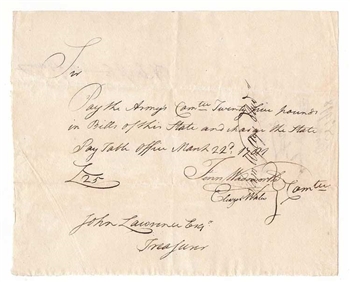 Sir
Pay the Army's Comtee Twenty five pounds
in Bills of this State and charge the State
Pay Table Office March 22d.
£25
Fenn Wadsworth
Comtee
John Lawrence Esqr
Treasurer